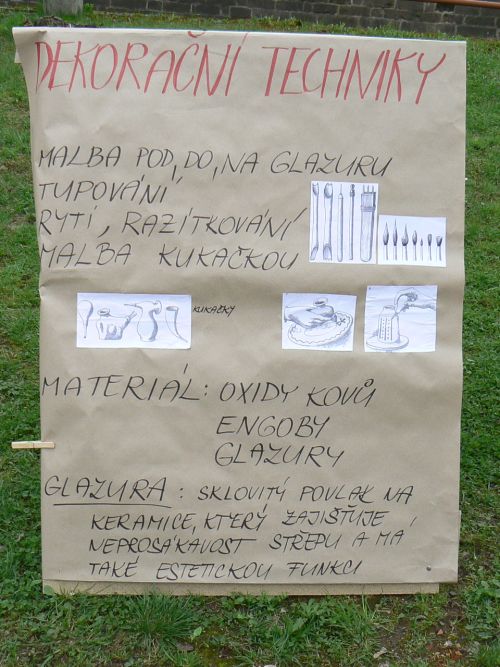 DEKORAČNÍ TECHNIKY
MALBA POD, DO, NA GLAZURU
TUPOVÁNÍ
RYTÍ, RAZÍTKOVÁNÍ
MALBA KUKAČKOU
KUKAČKY
MATERIÁL: OXIDY KOVŮ
ENGOBY
GLAZURY
GLAZURA: SKLOVITÝ POVLAK NA
KERAMICE, KTERÝ ZAJIŠŤUJE
NEPROSÁKAVOST STŘEPU A MÁ
TAKÉ ESTETICKOU FUNKCI